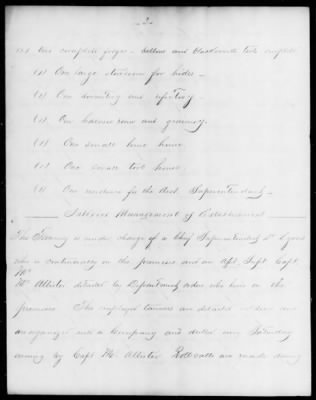 -2-
(1) One complete forge - bellows and blacksmith tools complete
(1) One large storeroom for hides -
(1) One counting and
(1) One balance room and granary.
(1) One small lime house.
(1) One small tool house.
(1) One residence for the Asst. Superintendent -
Interior Management of Establishment
The Tannery is under charge of a Chief Superintendent
who is continually on the premises and an Asst. Supt. Capt.
Mc
Mc Allister detailed by Department orders who lives on the
premises. The employed tanners are detailed soldiers
organized into a Company and drilled every Saturday
evening by Capt Mc Allister. Roll calls are made during